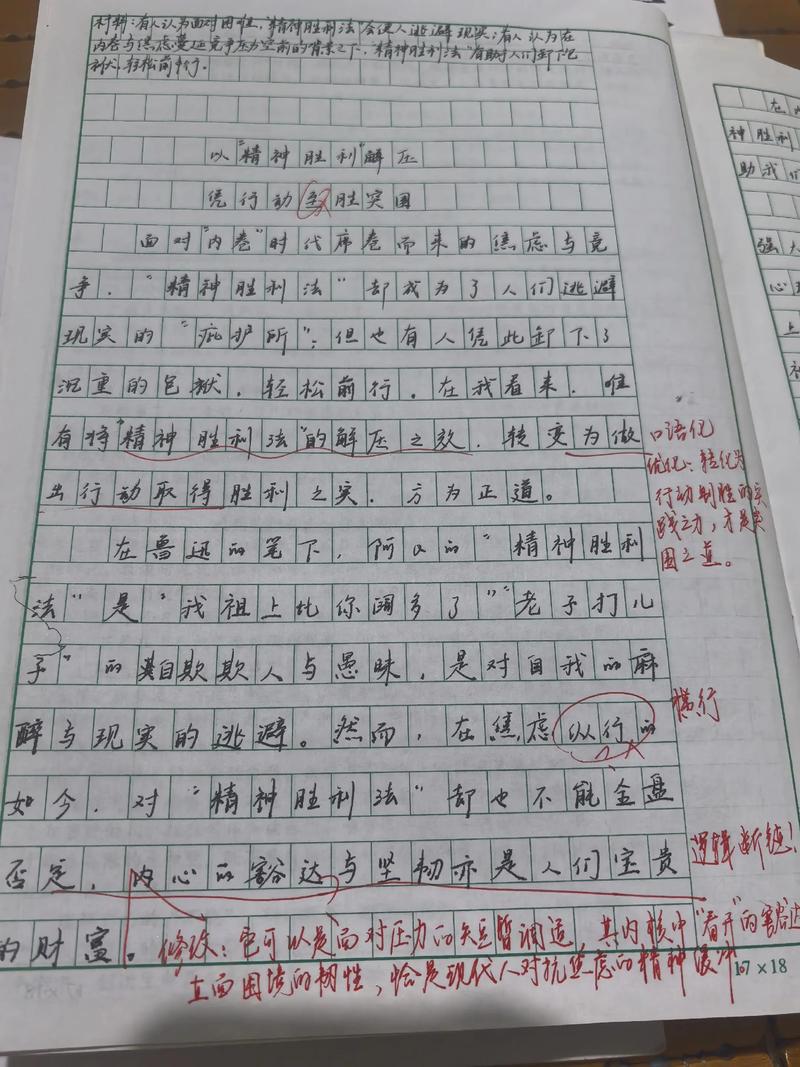 材料:有人认为面对困难,"精神胜利法"会使人逃避现实;有人认为在
内卷与焦虑蔓延竞争压力空前的背景之下,"精神胜利法"有助于人们卸下包
袱,轻松前行.
以"精神胜利"解压
凭行动至胜突围
面对"内卷"时代席卷而来的焦虑与竞
争,"精神胜利法"却成为了人们逃避
现实的"庇护所";但也有人凭此卸下了
沉重的包袱,轻松前行。在我看来,唯
有将"精神胜利法"的解压之效,转变为做
出行动取得胜利之实,方为正道。
口语化
优化:转化为
行动制胜的实
践之力,才是突
围之道。
在鲁迅的笔下,阿Q的"精神胜利
法"是"我祖上比你阔多了""老子打儿
子"的自欺欺人与愚昧,是对自我的麻
醉与现实的逃避。然而,在焦虑纵行的
横行
如今,对"精神胜利法"却也不能全盘
否定,内心的豁达与坚韧亦是人们宝贵
逻辑断链!
的财富。
修改:它可以是面对压力的短暂调适,其内核中"看开"的豁达
直面困境的韧性,恰是现代人对抗焦虑的精神缓冲。
17×18
在
神胜利
助我们
强大
心
上
神